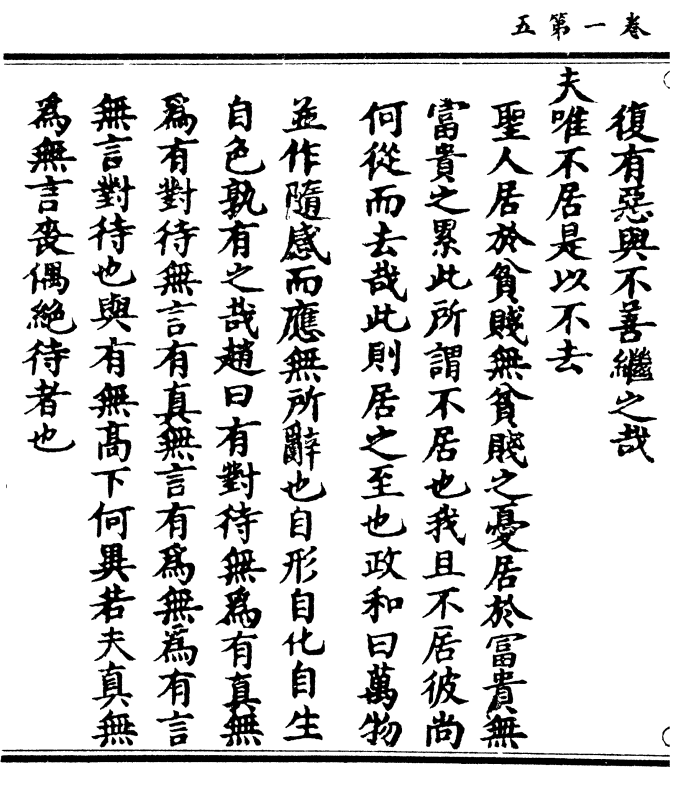 卷一第五
復有惡與不善繼之哉
夫唯不居是以不去
聖人居於貧賤無貧賤之憂居於富貴無
富貴之累此所謂不居也我且不居彼尚
何從而去哉此則居之至也政和曰萬物
並作隨感而應無所辭也自形自化自生
自色孰有之哉趙曰有對待無為有真無
爲有對待無言有真無言有爲無爲有言
無言對待也與有無高下何異若夫真無
爲無言喪偶絕待者也